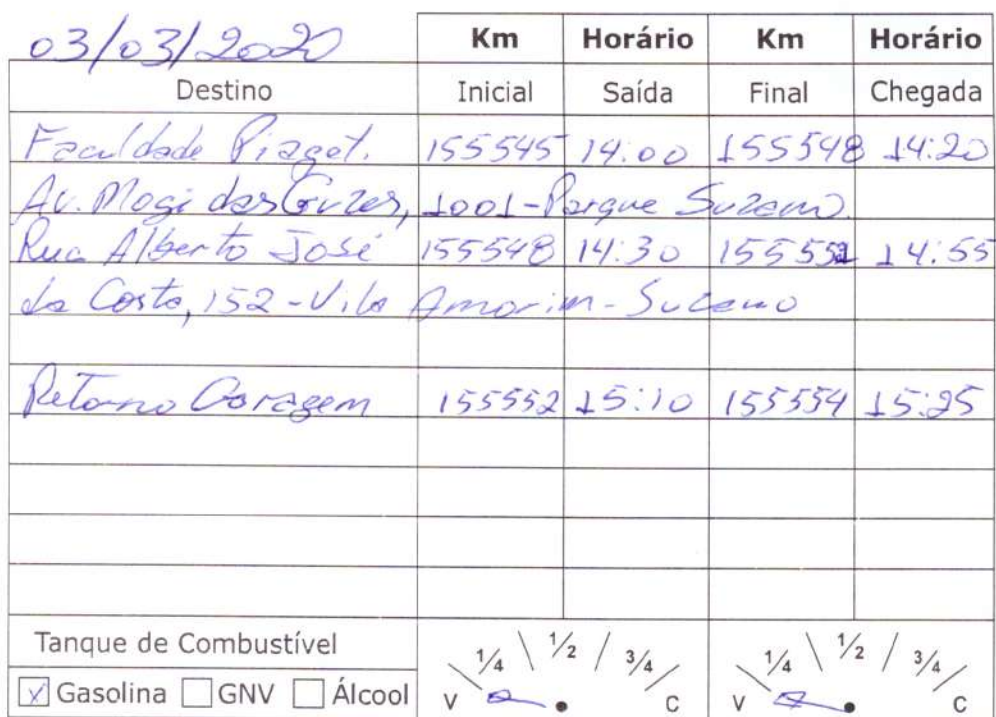 03/03/2020 Km Horário Km Horário
Destino Inicial Saída Final Chegada
Faculdade Piaget. 155545 14:00 155548 14:20
Av. Mogi das Cruzes, 1001-Parque Suzano.
Rua Alberto José 155548 14:30 155552 14:55
da Costa, 152-Vila Amorim-Suzano
Retorno Garagem 155552 15:10 155554 15:25
Tanque de Combustível
1/4 1/2 3/4 1/4 1/2 3/4
Gasolina GNV Álcool V C V C